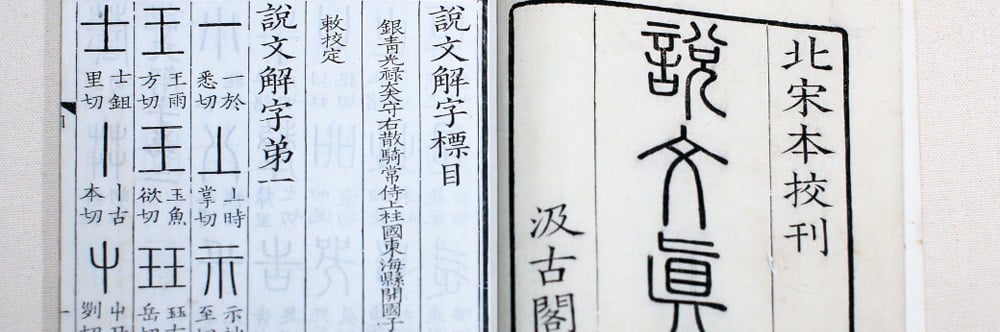 北宋本挍刊
說文眞
汲古閣
說文解字標目
銀青光祿大夫守右散騎常侍上柱國東海縣開國子
敕挍定
說文解字弟一
一於悉切 丄 丄時掌切 示 示
王 王雨方切 玉 玉魚欲切 玨 玨古岳切
士 士鉏里切 丨古本切 屮